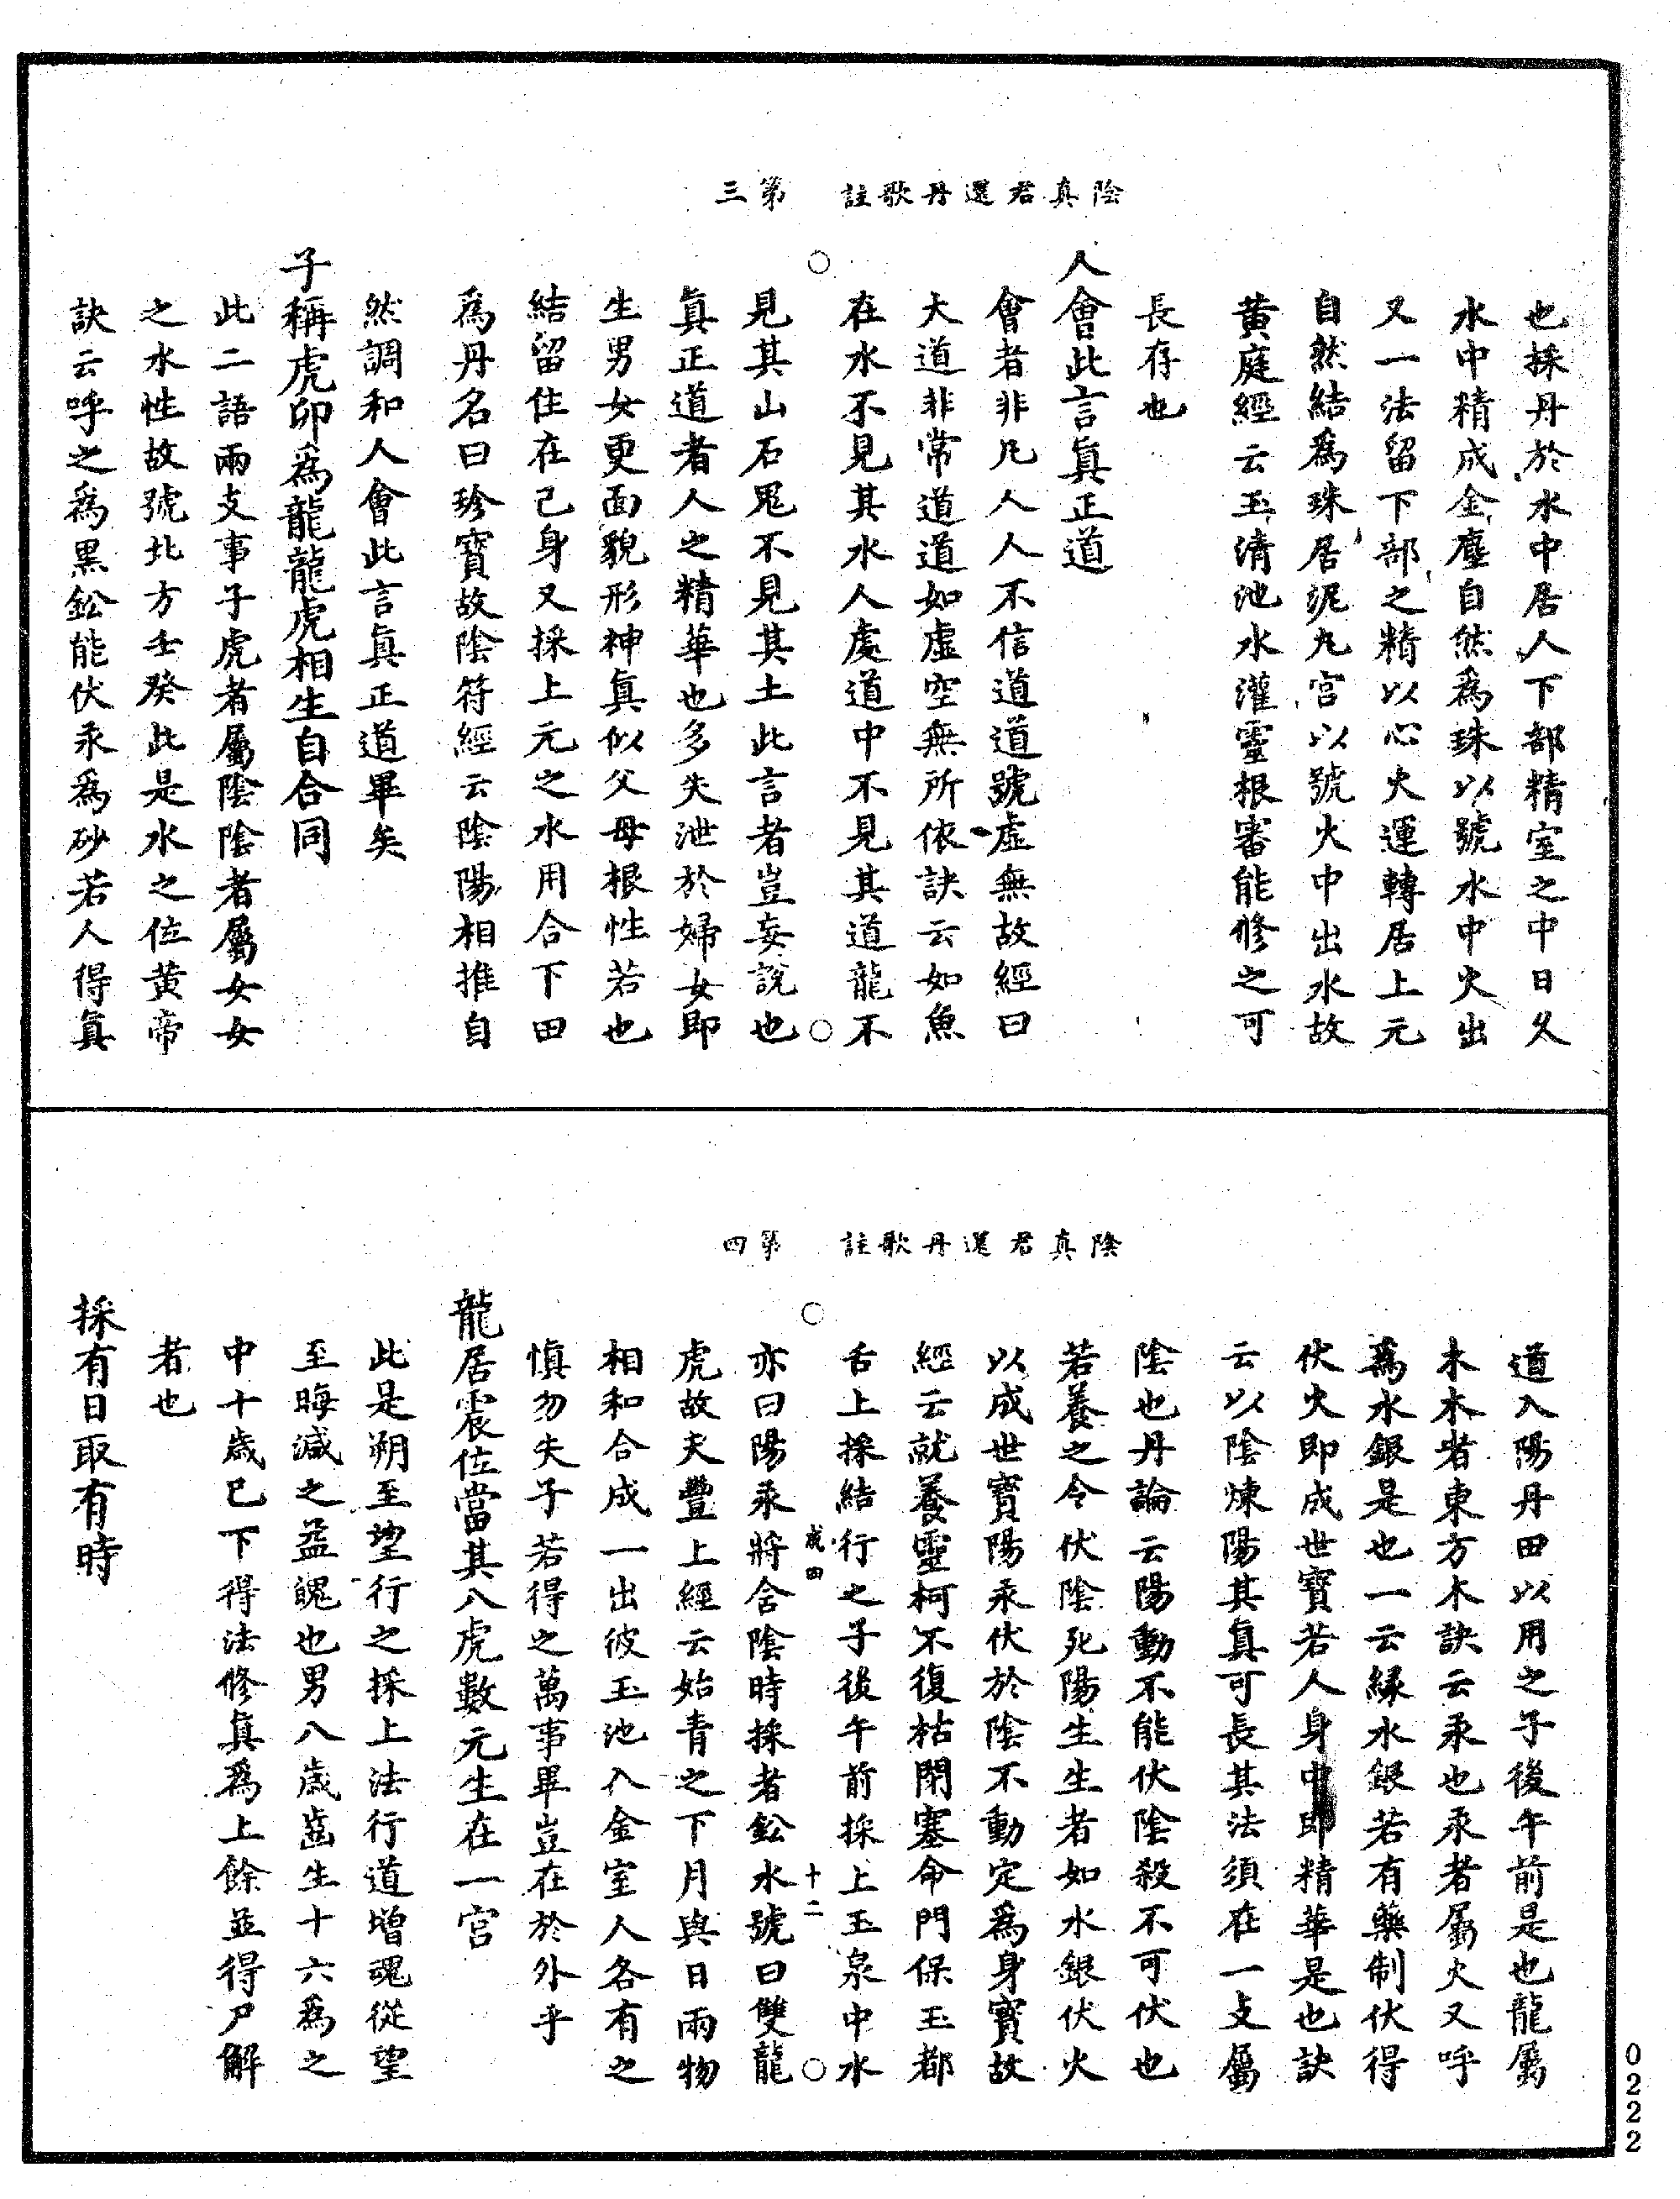 陰真君還丹歌註　第三
也採丹於水中居人下部精室之中日久
水中精成金塵自然為珠以號水中火出
又一法留下部之精以心火運轉居上元
自然結為珠居泥丸宫以號火中出水故
黃庭經云玉清池水灌靈根審能修之可
長存也
人會此言真正道
會者非凡人人不信道道號虛無故經曰
大道非常道道如虛空無所依訣云如魚
在水不見其水人處道中不見其道龍不
見其山石鬼不見其土此言者豈妄說也
真正道者人之精華也多失泄於婦女即
生男女更面貌形神真似父母根性若也
結留住在己身又採上元之水用合下田
為丹名曰珍寶故陰符經云陰陽相推自
然調和人會此言真正道畢矣
子稱虎卯為龍龍虎相生自合同
此二語兩支事子虎者屬陰陰者屬女女
之水性故號北方壬癸此是水之位黃帝
訣云呼之為黑鈆能伏汞為砂若人得真
陰真君還丹歌註　第四
道入陽丹田以用之子後午前是也龍屬
木木者東方木訣云汞也汞者屬火又呼
為水銀是也一云緣水銀若有藥制伏得
伏火即成世寶若人身中即精華是也訣
云以陰煉陽其真可長其法須在一支屬
陰也丹論云陽動不能伏陰殺不可伏也
若養之令伏陰死陽生生者如水銀伏火
以成世寶陽汞伏於陰不動定為身寶故
經云就養靈柯不復枯閉塞命門保玉都
舌上採結行之子後午前採上玉泉中水
成四　十二
亦曰陽汞將舍陰時採者鈆水號曰雙龍
虎故天豐上經云始青之下月與日兩物
相和合成一出彼玉池入金室人各有之
慎勿失子若得之萬事畢豈在於外乎
龍居震位當其八虎數元生在一宫
此是朔至望行之採上法行道增魂從望
至晦減之益魄也男八歲齒生十六為之
中十歲已下得法修真為上餘並得尸解
者也
採有日取有時
0222